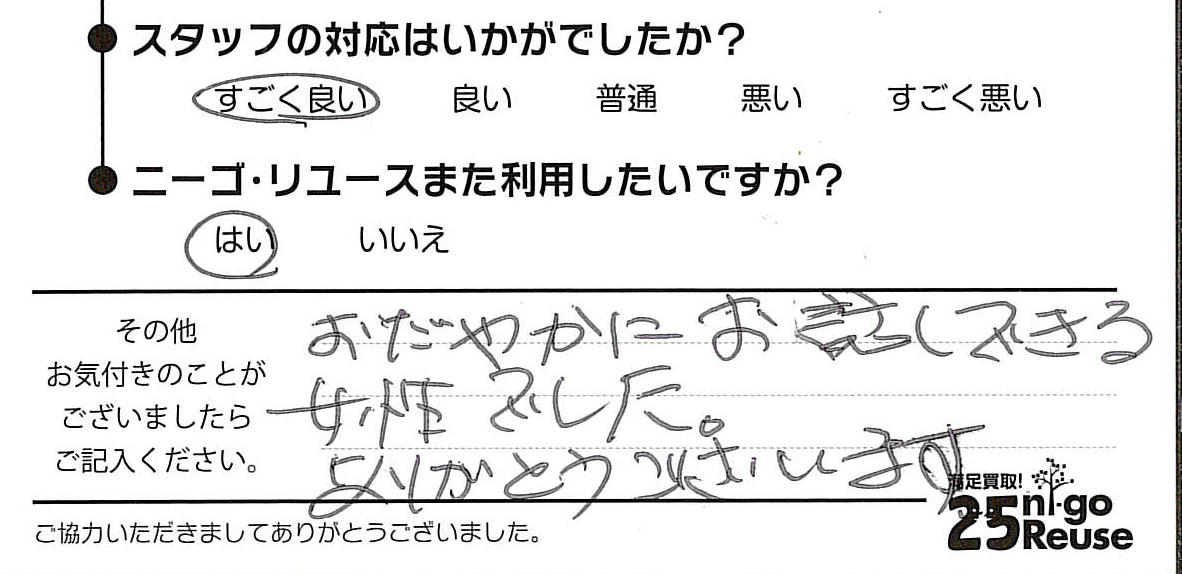 スタッフの対応はいかがでしたか？
すごく良い 良い 普通 悪い すごく悪い
ニーゴ・リユースまた利用したいですか？
はい いいえ
その他
お気付きのことが
ございましたら
ご記入ください。
おだやかにお話しできる
女性でした。
ありがとうございます
満足買取!
25 ni-go
Reuse
ご協力いただきましてありがとうございました。